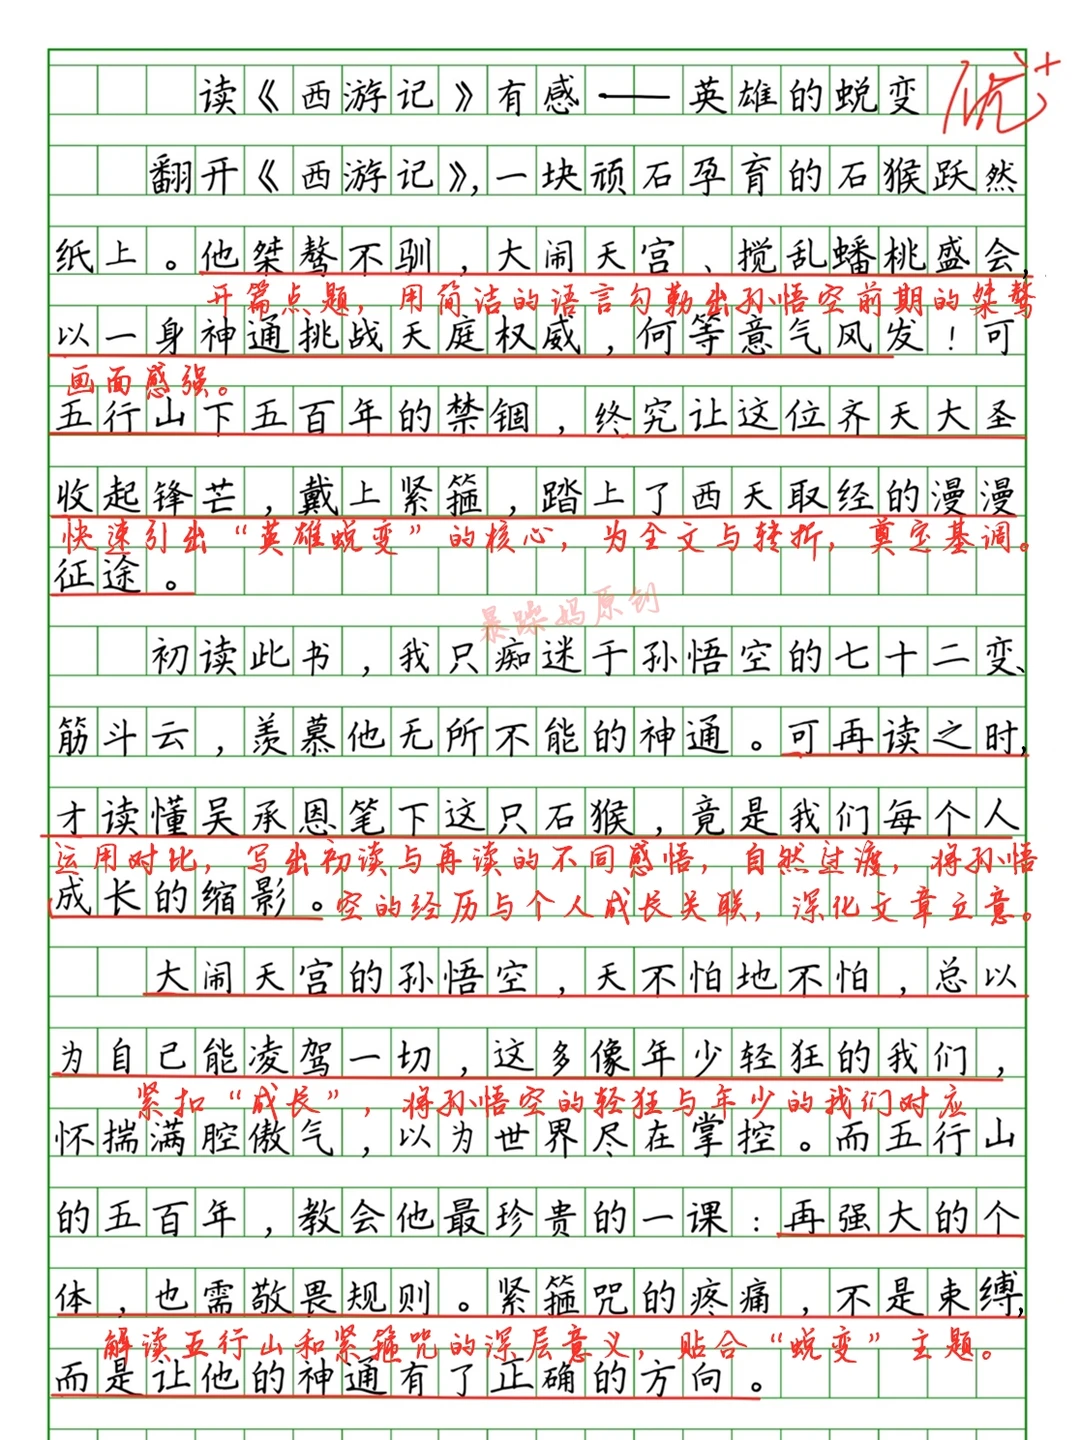 读《西游记》有感——英雄的蜕变
优+
翻开《西游记》,一块顽石孕育的石猴跃然
纸上。他桀骜不驯，大闹天宫、搅乱蟠桃盛会,
开篇点题，用简洁的语言勾勒出孙悟空前期的桀骜
以一身神通挑战天庭权威，何等意气风发！可
画面感强。
五行山下五百年的禁锢，终究让这位齐天大圣
收起锋芒，戴上紧箍，踏上了西天取经的漫漫
快速引出“英雄蜕变”的核心，为全文与转折，奠定基调。
征途。
暴躁妈原创
初读此书，我只痴迷于孙悟空的七十二变、
筋斗云，羡慕他无所不能的神通。可再读之时,
才读懂吴承恩笔下这只石猴，竟是我们每个人
运用对比，写出初读与再读的不同感悟，自然过渡，将孙悟
成长的缩影。空的经历与个人成长关联，深化文章立意。
大闹天宫的孙悟空，天不怕地不怕，总以
为自己能凌驾一切，这多像年少轻狂的我们，
紧扣“成长”，将孙悟空的轻狂与年少的我们对应
怀揣满腔傲气，以为世界尽在掌控。而五行山
的五百年，教会他最珍贵的一课：再强大的个
体，也需敬畏规则。紧箍咒的疼痛，不是束缚,
解读五行山和紧箍咒的深层意义，贴合“蜕变”主题。
而是让他的神通有了正确的方向。